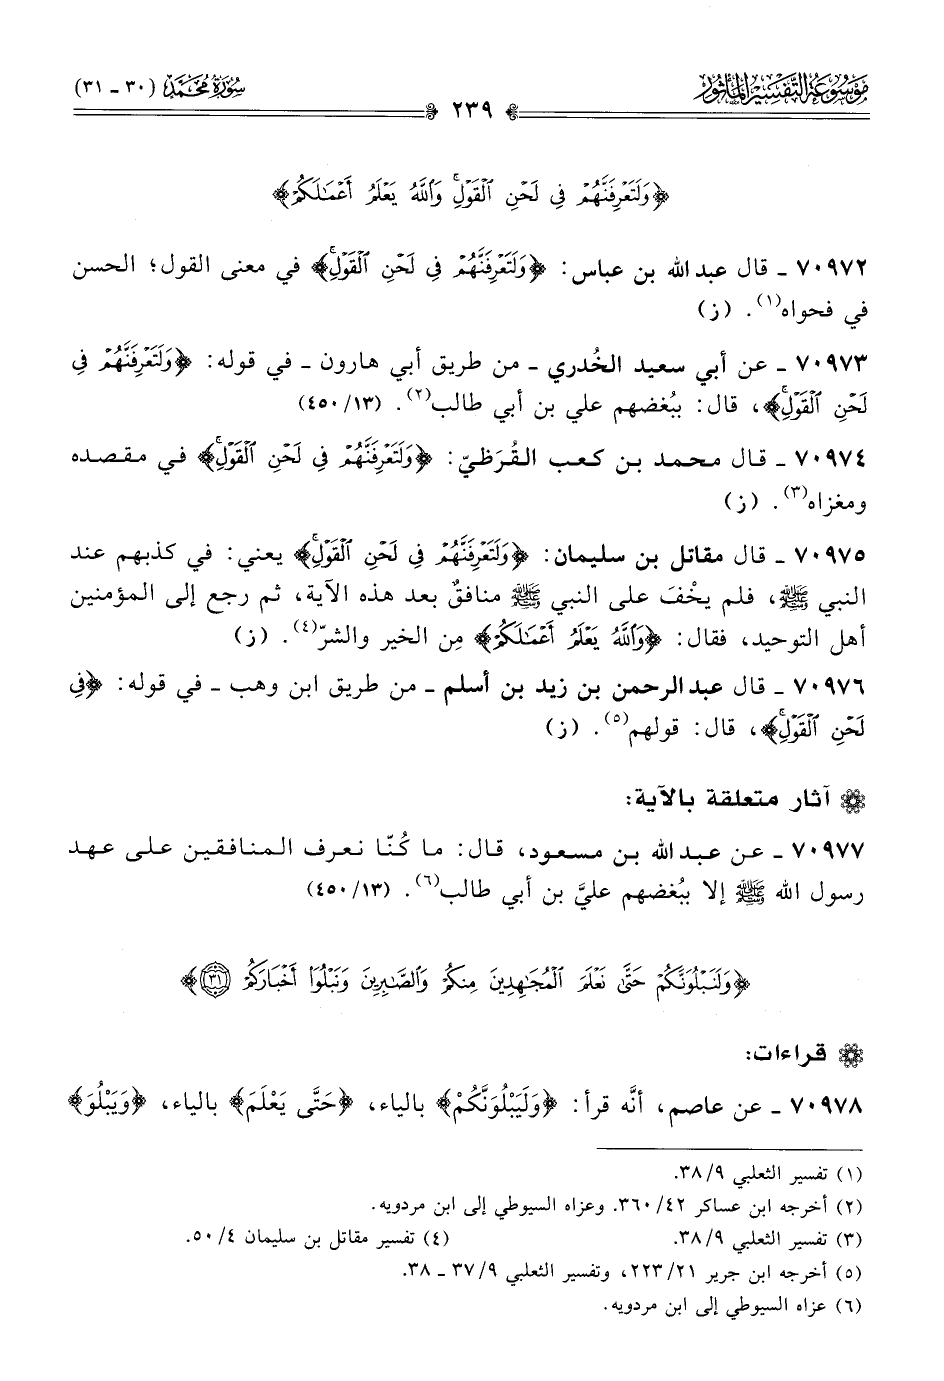 موسوعة التفسير المأثور
٢٣٩
سورة محمد (٣٠ - ٣١)
﴿وَلَتَعْرِفَنَّهُمْ فِي لَحْنِ ٱلْقَوْلِ ۚ وَٱللَّهُ يَعْلَمُ أَعْمَـٰلَكُمْ﴾
٧٠٩٧٢ - قال عبد الله بن عباس: ﴿وَلَتَعْرِفَنَّهُمْ فِي لَحْنِ ٱلْقَوْلِ ۚ﴾ في معنى القول؛ الحسن
في فحواه(١). (ز)
٧٠٩٧٣ - عن أبي سعيد الخُدري - من طريق أبي هارون - في قوله: ﴿وَلَتَعْرِفَنَّهُمْ فِي
لَحْنِ ٱلْقَوْلِ ۚ﴾، قال: ببُغضهم علي بن أبي طالب(٢). (٤٥٠/١٣)
٧٠٩٧٤ - قال محمد بن كعب القُرَظيّ: ﴿وَلَتَعْرِفَنَّهُمْ فِي لَحْنِ ٱلْقَوْلِ ۚ﴾ في مقصده
ومغزاه(٣). (ز)
٧٠٩٧٥ - قال مقاتل بن سليمان: ﴿وَلَتَعْرِفَنَّهُمْ فِي لَحْنِ ٱلْقَوْلِ ۚ﴾ يعني: في كذبهم عند
النبي ﷺ، فلم يخْفَ على النبي ﷺ منافقٌ بعد هذه الآية، ثم رجع إلى المؤمنين
أهل التوحيد، فقال: ﴿وَٱللَّهُ يَعْلَمُ أَعْمَـٰلَكُمْ﴾ مِن الخير والشرّ(٤). (ز)
٧٠٩٧٦ - قال عبد الرحمن بن زيد بن أسلم - من طريق ابن وهب - في قوله: ﴿فِي
لَحْنِ ٱلْقَوْلِ ۚ﴾، قال: قولهم(٥). (ز)
آثار متعلقة بالآية:
٧٠٩٧٧ - عن عبد الله بن مسعود، قال: ما كُنّا نعرف المنافقين على عهد
رسول الله ﷺ إلا ببُغضهم عليَّ بن أبي طالب(٦). (٤٥٠/١٣)
﴿وَلَنَبْلُوَنَّكُمْ حَتَّىٰ نَعْلَمَ ٱلْمُجَـٰهِدِينَ مِنكُمْ وَٱلصَّـٰبِرِينَ وَنَبْلُوَا۟ أَخْبَارَكُمْ ٣١﴾
قراءات:
٧٠٩٧٨ - عن عاصم، أنَّه قرأ: ﴿وَلَيَبْلُوَنَّكُمْ﴾ بالياء، ﴿حَتَّى يَعْلَمَ﴾ بالياء، ﴿وَيَبْلُوَ﴾
(١) تفسير الثعلبي ٣٨/٩.
(٢) أخرجه ابن عساكر ٣٦٠/٤٢. وعزاه السيوطي إلى ابن مردويه.
(٣) تفسير الثعلبي ٣٨/٩. (٤) تفسير مقاتل بن سليمان ٥٠/٤.
(٥) أخرجه ابن جرير ٢٢٣/٢١، وتفسير الثعلبي ٣٧/٩ - ٣٨.
(٦) عزاه السيوطي إلى ابن مردويه.